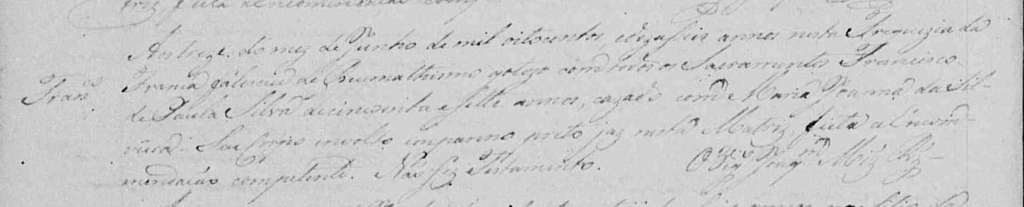 Aos treze do mez de Junho de mil oitocentos e dezaseis annos nesta Freguezia da
Fran.co
Franca faleceu de Reumathismo com todos os Sacramentos Francisco
de Paula Silva de cincoenta e sette annos, cazado com Maria Joanna da Sil-
veira. Seu Corpo involto em panno preto jaz nesta Matriz, feita a Encom-
mendação competente. Não fez Testamento. O Vig.ro Joaq.m